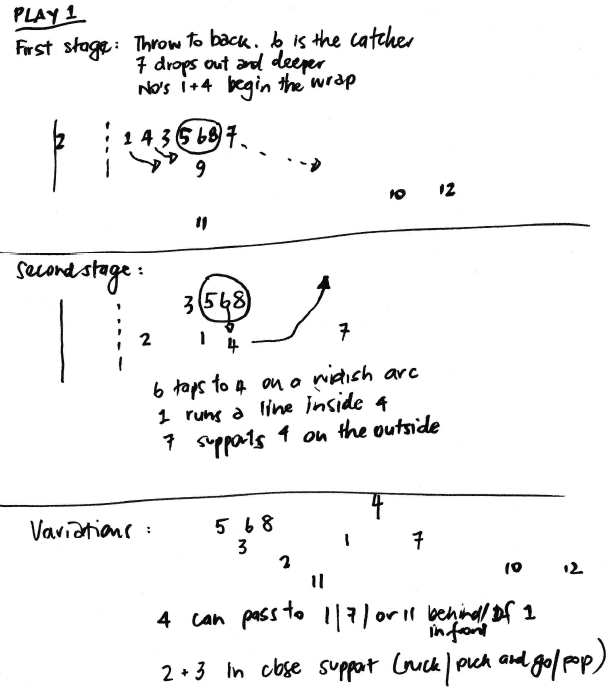 PLAY 1
First stage: Throw to back. 6 is the catcher
7 drops out and deeper
No's 1+4 begin the wrap
2 1 4 3 5 6 8 7
9
10 12
11
Second stage:
3 5 6 8
2 1 4 7
6 taps to 4 on a widish arc
1 runs a line inside 4
7 supports 4 on the outside
4
Variations: 5 6 8
3 1 7
2
11 10 12
4 can pass to 1/7/or 11 behind/ of 1
in front
2+3 in close support (ruck/pick and go/pop)